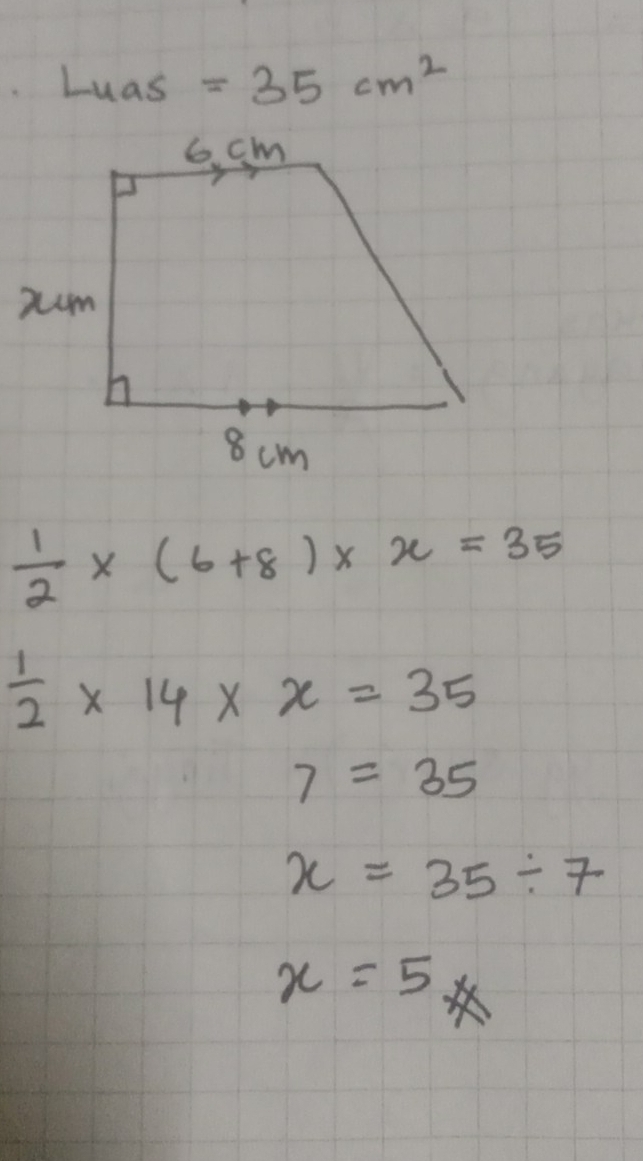 . Luas = 35 cm²
6 cm
x cm
8 cm
1/2 × (6+8) × x = 35
1/2 × 14 × x = 35
7 = 35
x = 35 ÷ 7
x = 5 #